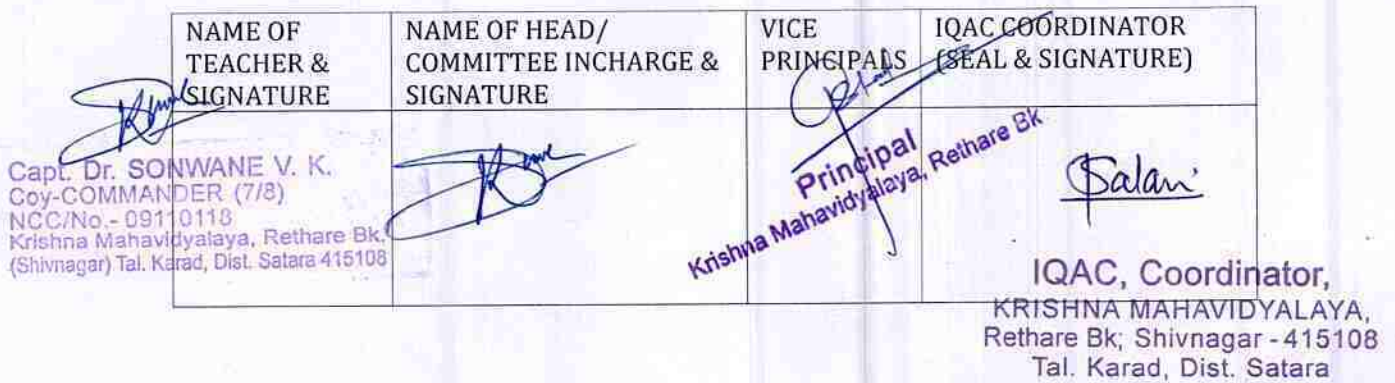 NAME OF
TEACHER &
SIGNATURE
NAME OF HEAD/
COMMITTEE INCHARGE &
SIGNATURE
VICE
PRINCIPALS
IQAC COORDINATOR
(SEAL & SIGNATURE)
Capt. Dr. SONWANE V. K.
Coy-COMMANDER (7/8)
NCC/No.- 09110118
Krishna Mahavidyalaya, Rethare Bk.
(Shivnagar) Tal. Karad, Dist. Satara 415108
Principal
Krishna Mahavidyalaya, Rethare Bk
IQAC, Coordinator,
KRISHNA MAHAVIDYALAYA,
Rethare Bk; Shivnagar - 415108
Tal. Karad, Dist. Satara